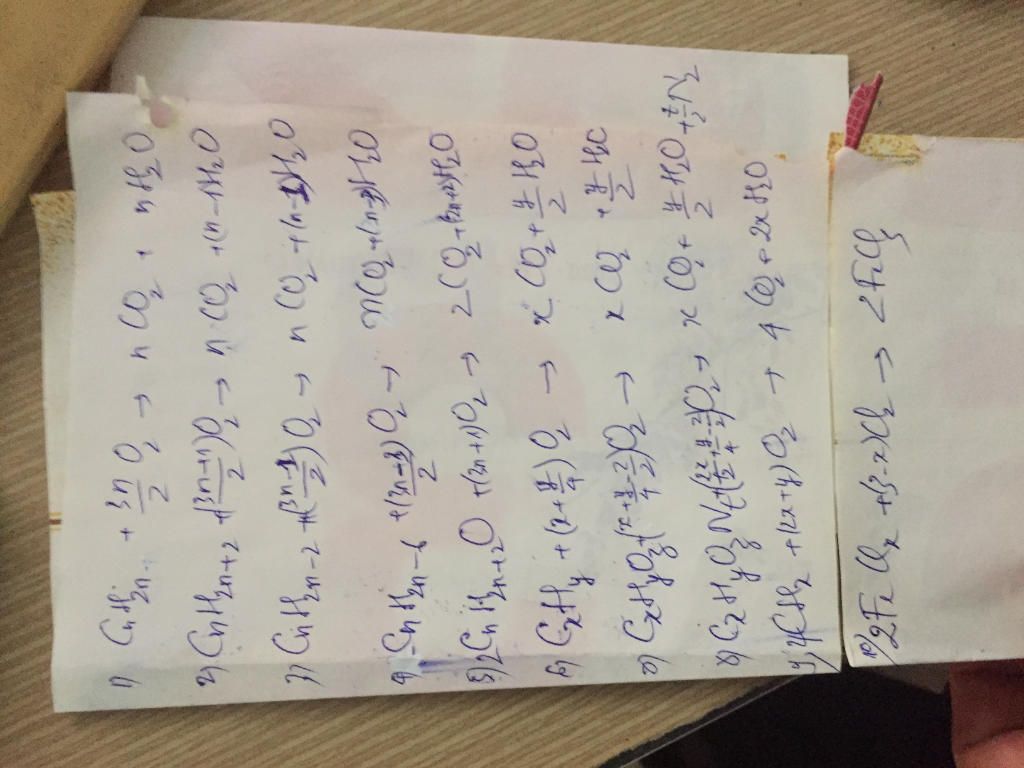 1) CnH2n + 3n/2 O2 → n CO2 + n H2O
2) CnH2n+2 + (3n-1)/2 O2 → n CO2 + (n-1)H2O
3) CnH2n-2 + (3n-1)/2 O2 → n CO2 + (n-1)H2O
4) CnH2n-6 + (3n-3)/2 O2 → nCO2 + (n-3)H2O
5) 2CnH2n+2O + (3n+1)O2 → 2CO2 + (2n+2)H2O
6) CxHy + (x+y/4)O2 → x CO2 + y/2 H2O
CxHyOz + (x+y/4-z/2)O2 → x CO2 + y/2 H2O
8) CxHyOzNt + O2 → x CO2 + y/2 H2O + t/2 N2
+ (2x+y)O2 → 4 CO2 + 2x H2O
10) 2FeClx + (3-x)Cl2 → 2FeCl3